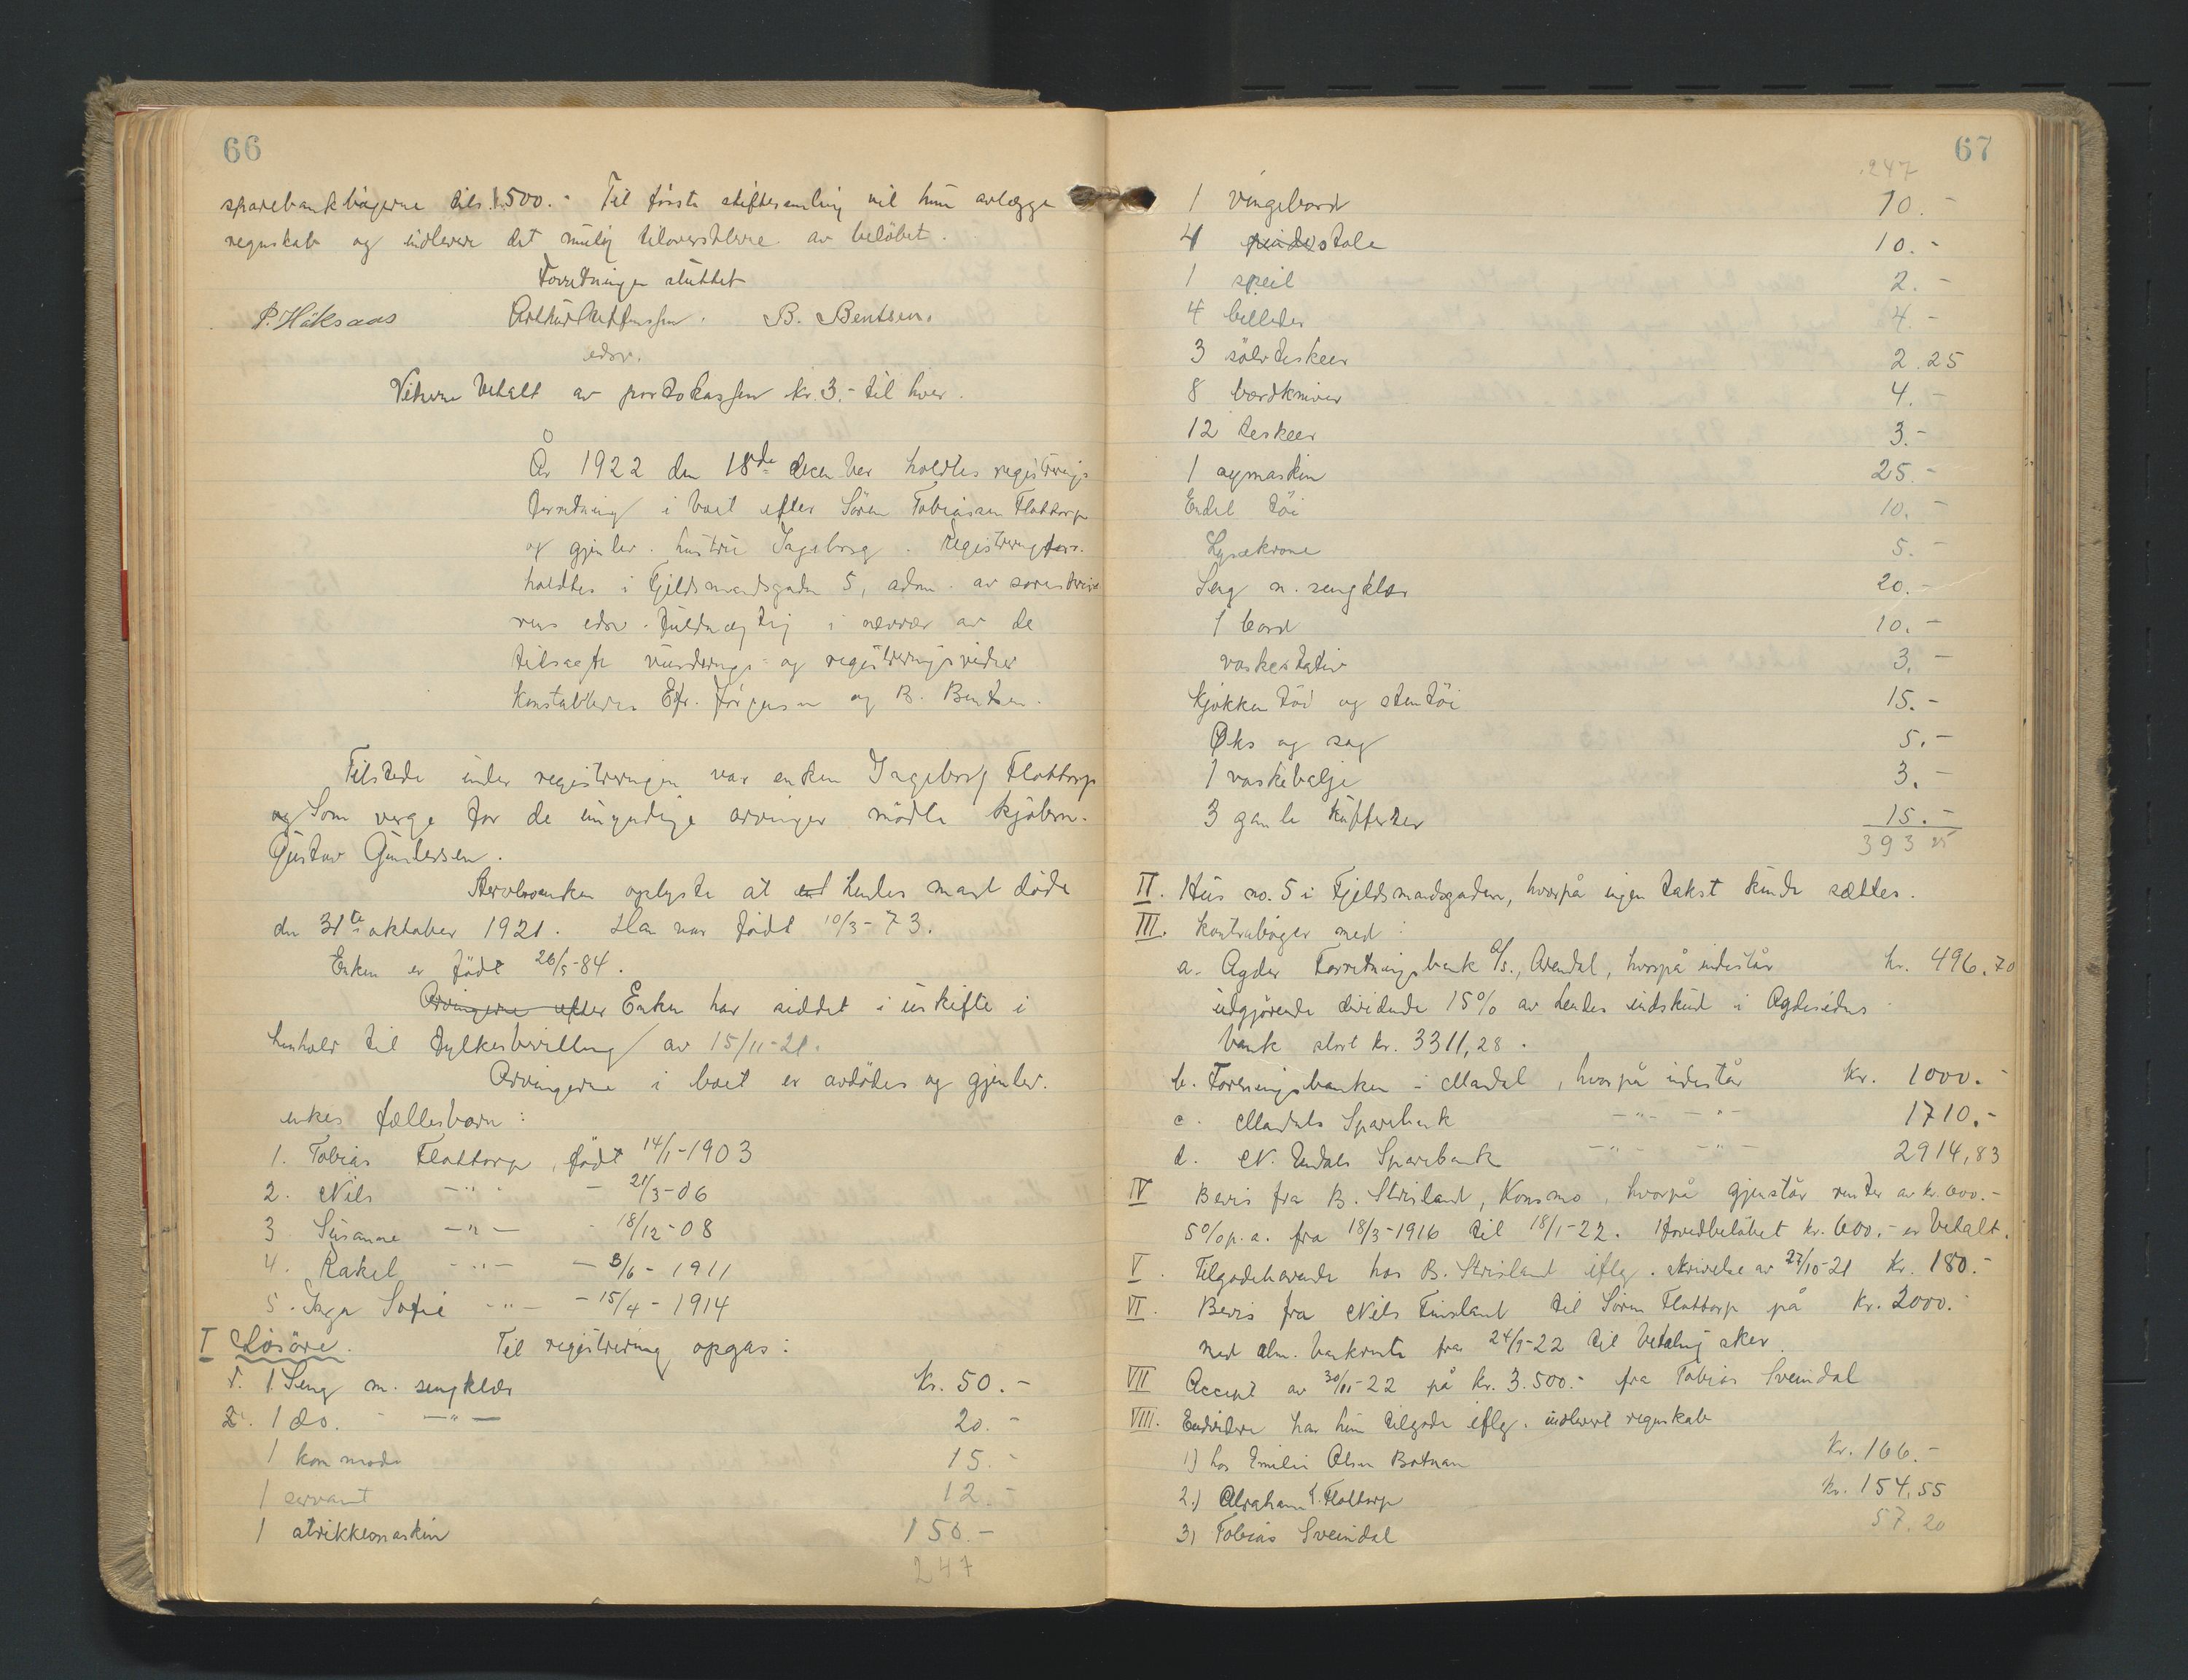 66
sparebankbøgerne tils. 1500.- Til første skiftesamling vil hun avlægge
regnskab og indlevere det mulig tiloversblevne av beløbet.
Forretningen sluttet
P. Håksaas B. Bentsen.
edsv.
Vitnerne betalt av portokassen kr. 3,- til hver.
År 1922 den 18de december holdtes registrerings
forretning i boet efter Sören Tobiassen Flottorp
og gjenlev. hustru Ingeborg. Registreringsforr.
holdtes i Fjeldsmandsgaden 5, adm. av sorenskrive
rens edsv. fuldmægtig i nærvær av de
tilsagte vurderings- og registreringsvidner
konstablerne Efr. Jörgensen og B. Bentsen.
Tilstede under registreringen var enken Ingeborg Flottorp
og Som verge for de umyndige arvinger mödte kjöbm.
Gustav Gundersen.
oplyste at hendes mand döde
den 31te oktober 1921. Han var födt 10/3-73.
Enken er födt 26/5-84.
Arvingerne efter Enken har siddet i uskifte i
henhold til fylkesbevilling av 15/11-21.
Arvingerne i boet er avdödes og gjenlev.
enkes fællesbarn:
1. Tobias Flottorp, födt 14/1-1903
2. Nils -"- - 21/3-06
3 Susanne -"- - 18/12-08
4. Rakel -"- - 3/6-1911
5. Inga Sofie -"- - 15/4-1914
I Lösöre. Til registrering opgas:
1. 1 Seng m. sengklær Kr. 50.-
2. 1 do. -"- 20.-
1 kommode 15.-
1 servant 12.-
1 strikkemaskin 150.-
247
67
247
1 vingebord 10.-
4 pindestole 10.-
1 speil 2.-
4 billeder 4.-
3 sölvteskeer 2.25
8 bordkniver 4.-
12 teskeer 3.-
1 symaskin 25.-
Endel töi 10.-
Lysekrone 5.-
Seng m. sengklær 20.-
1 bord 10.-
vaskestativ 3.-
Kjökkentöi og stentöi 15.-
Øks og sag 5.-
1 vaskebalje 3.-
3 gamle kufferter 15.-
393 25
II. Hus no. 5 i Fjeldsmandsgaden, hvorpå ingen takst kunde sættes.
III. Kontrabøger med:
a. Agder Forretningsbank A/S., Arendal, hvorpå indestår kr. 496.70
utgjörende dividende 15% av hendes indskud i Agdesidens
bank stort kr. 3311,28.
b. Foreningsbanken i Mandal, hvorpå indestår Kr. 1000.-
c. Mandals Sparebank -"- -"- 1710.-
d. N. Undals Sparebank -"- -"- 2914,83
IV Bevis fra B. Strisland, Konsmo, hvorpå gjenstår renter av kr. 600.-
5% p.a. fra 18/3-1916 til 18/1-22. Hovedbelöbet kr. 600,- er betalt.
V. Tilgodehavende hos B. Strisland iflg. skrivelse av 27/10-21 Kr. 180.-
VI. Bevis fra Nils Finsland til Sören Flottorp på Kr. 2000.-
med alm. bankrente fra 24/9-22 til betaling sker.
VII Accept av 30/11-22 på kr. 3.500.- fra Tobias Sveindal
VIII. Endvidere har hun tilgode iflg. indlevert regnskab
1) hos Emilie Olsen Kr. 166.-
2.) Abraham T. Flottorp kr. 154,55
3) Tobias Sveindal 57.20